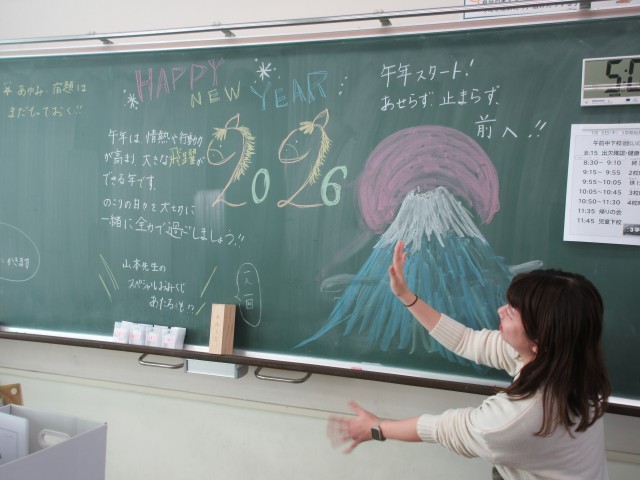 ※あゆみ・宿題は
まだもっておく!!
HAPPY
NEW
YEAR
午年スタート!
あせらず、止まらず、
前へ!!
午年は、情熱や行動力
が高まり、大きな飛躍が
できる年です。
のこりの日々を大切に
一緒に全力で過ごしましょう!!
2026
山本先生の
スペシャルおみくじ
あたるかも??
一人一回
午前中下校
8:15 出欠確認・健康
8:30～ 9:10
9:15～ 9:55 2校
9:55～10:05
10:05～10:45 3校
10:50～11:30 4校
11:35 帰りの会
11:45 児童下校